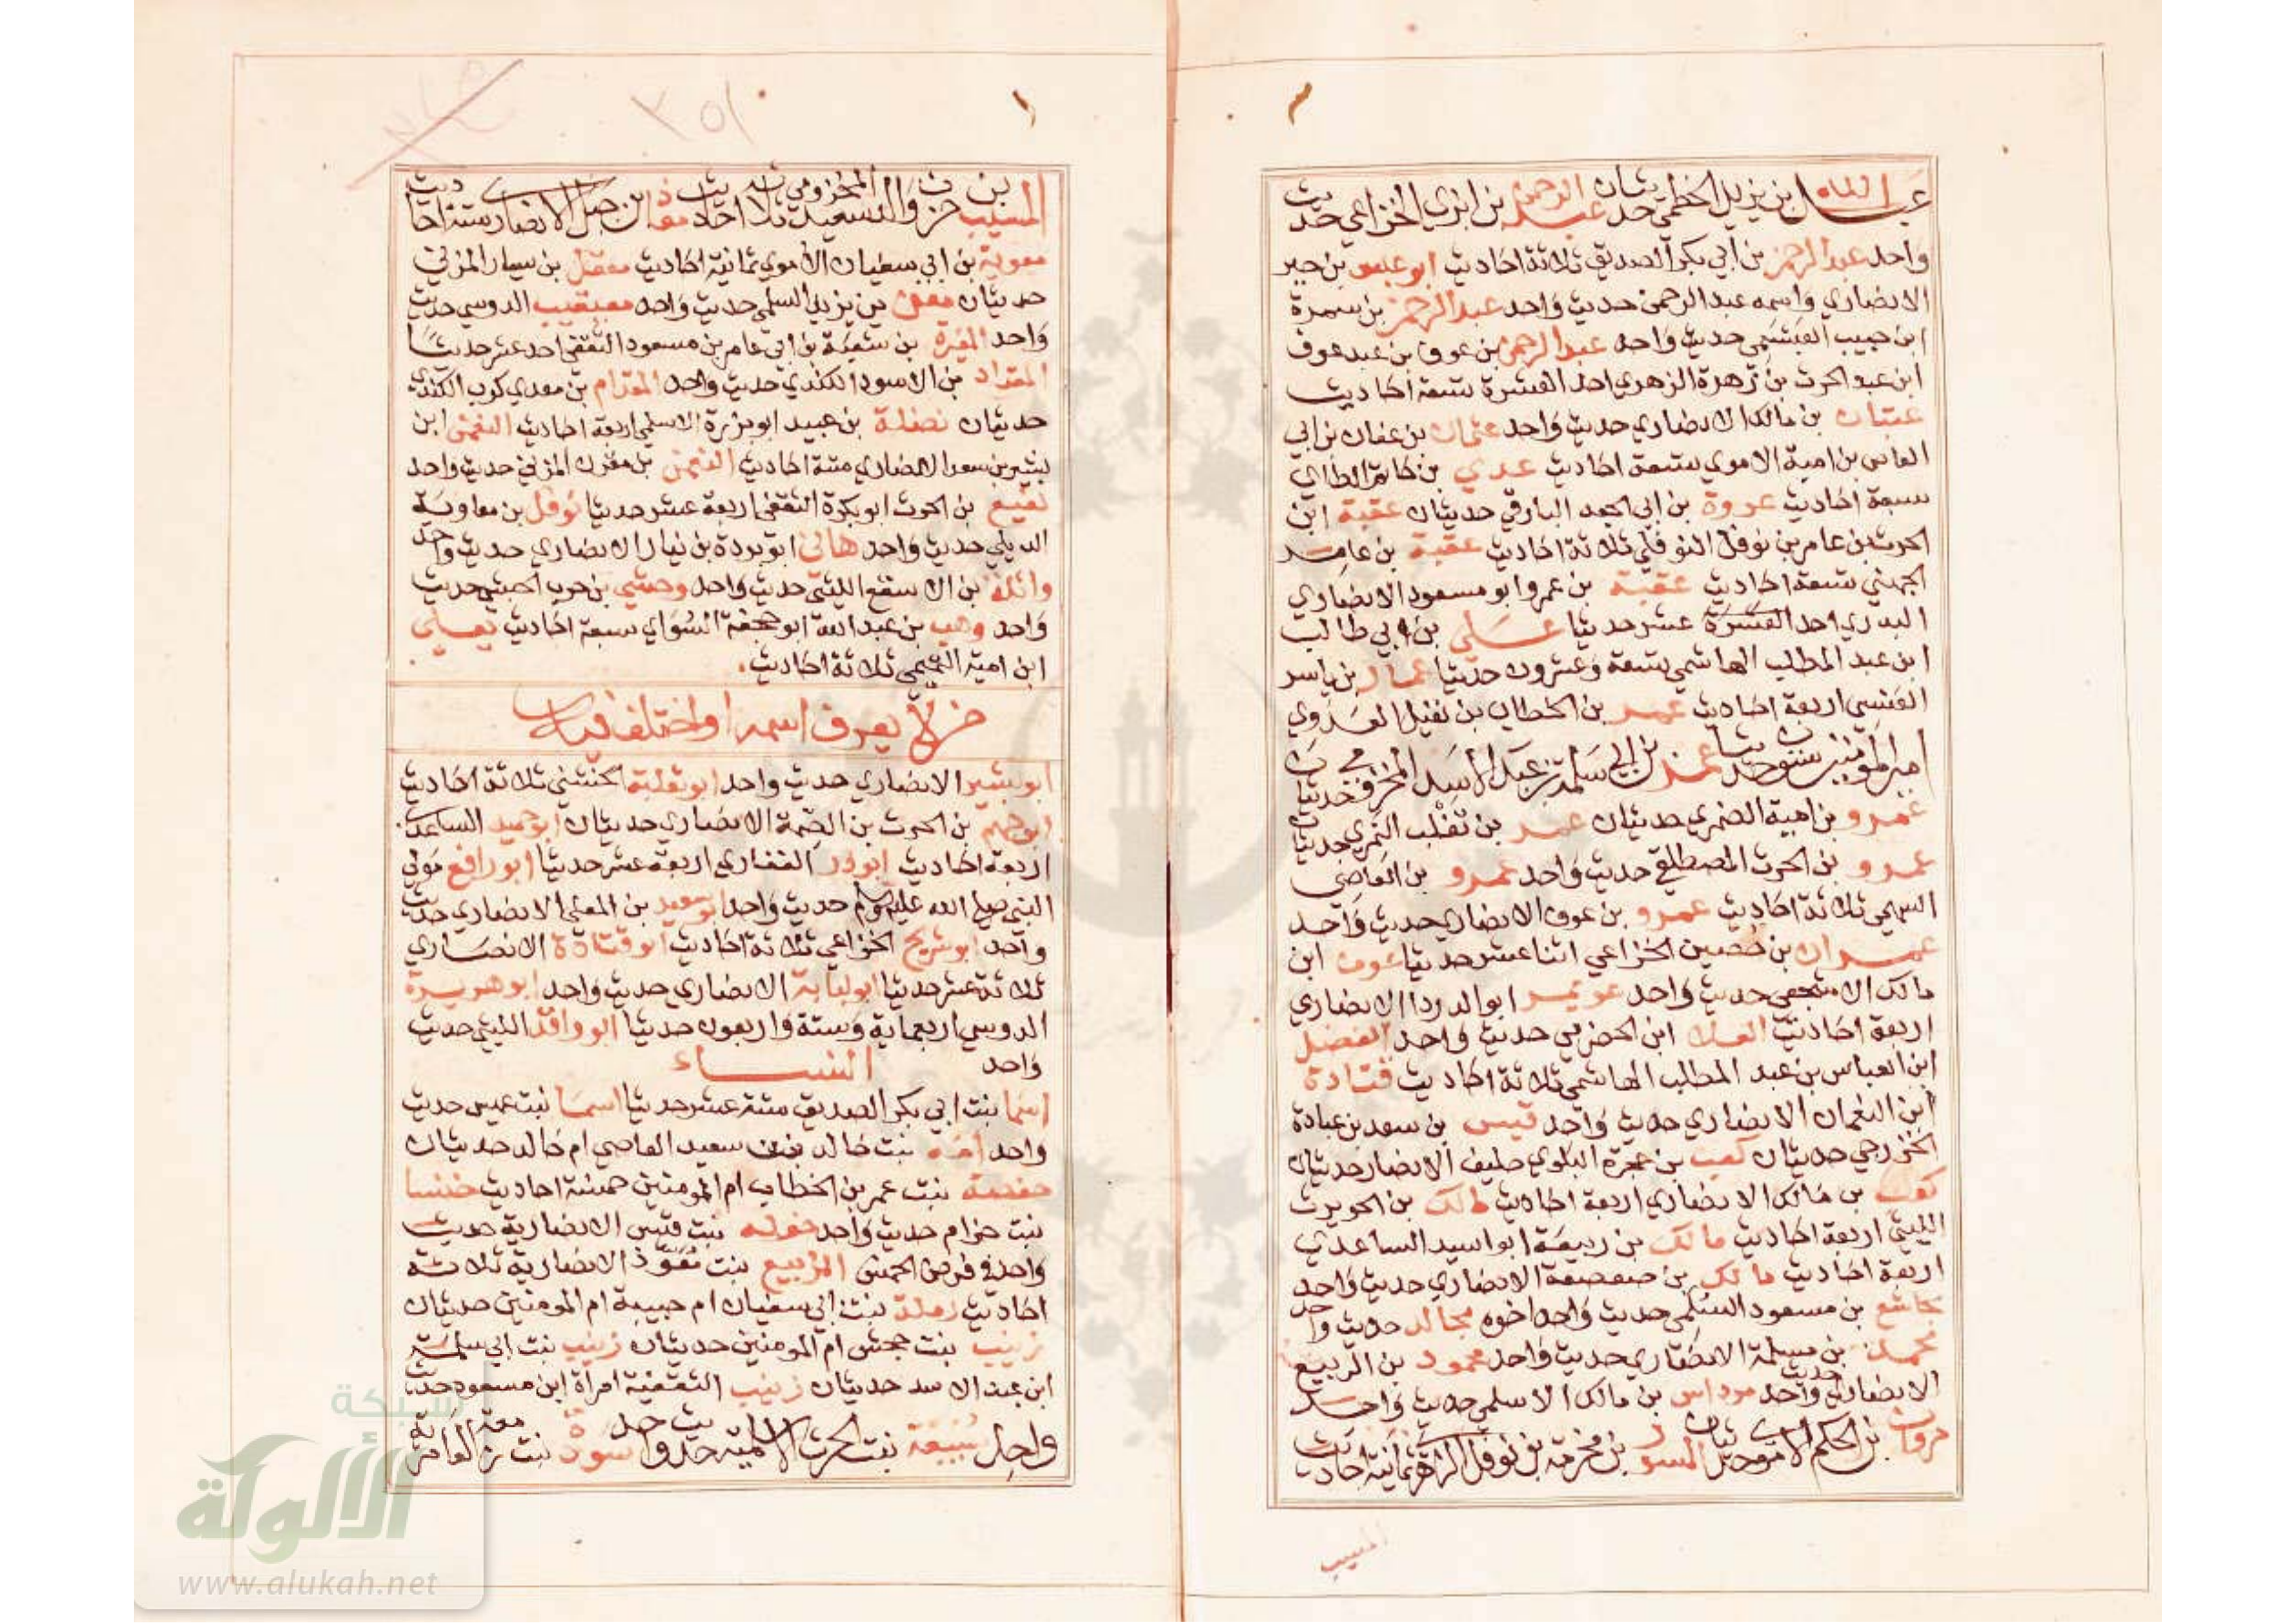 عبد الله بن يزيد الخطمي حديثان عبد الرحمن بن ابزي الخزاعي حديث
واحد عبد الرحمن بن أبي بكر الصديق ثلاثة احاديث ابو عبس بن جبر
الانصاري واسمه عبد الرحمن حديث واحد عبد الرحمن بن سمرة
ابن حبيب العبشمي حديث واحد عبد الرحمن بن عوف بن عبد عوف
ابن عبد الحرث بن زهرة الزهري احد العشرة تسعة احاديث
عتبان بن مالك الانصاري حديث واحد عثمان بن عفان بن ابي
العاص بن امية الاموي تسعة احاديث عدي بن حاتم الطاي
سبعة احاديث عروة بن ابي الجعد البارقي حديثان عقبة ابن
الحرث بن عامر بن نوفل النوفلي ثلاثة احاديث عقبة بن عامر
الجهني تسعة احاديث عقبة بن عمرو ابو مسعود الانصاري
البدري احد العشرة عشر حديثا علي بن ابي طالب
ابن عبد المطلب الهاشمي تسعة وعشرون حديثا عمار بن ياسر
العنسي اربعة احاديث عمر بن الخطاب بن نفيل العدوي
امير المؤمنين ستون حديثا عمر بن ابي سلمة بن عبد الاسد المخزومي حديثان
عمرو بن امية الضمري حديثان عمر بن تغلب النمري حديثان
عمرو بن الحرث المصطلقي حديث واحد عمرو بن العاصي
السهمي ثلاثة احاديث عمرو بن عوف الانصاري حديث واحد
عمران بن حصين الخزاعي اثنا عشر حديثا عوف ابن
مالك الاشجعي حديث واحد عويمر ابو الدردا الانصاري
اربعة احاديث العلا ابن الحضرمي حديث واحد الفضل
ابن العباس بن عبد المطلب الهاشمي ثلاثة احاديث قتادة
ابن النعمان الانصاري حديث واحد قيس بن سعد بن عبادة
الخزرجي حديثان كعب بن عجرة البلوي حليف الانصار حديثان
كعب بن مالك الانصاري اربعة احاديث مالك بن الحويرث
الليثي اربعة احاديث مالك بن ربيعة ابو اسيد الساعدي
اربعة احاديث مالك بن صعصعة الانصاري حديث واحد
مجاشع بن مسعود السلمي حديث واحد اخوه مجالد حديث واحد
محمد بن مسلمة الانصاري حديث واحد محمود بن الربيع
الانصاري حديث واحد مرداس بن مالك الاسلمي حديث واحد
مروان بن الحكم الاموي حديثان المسور بن مخرمة بن نوفل الزهري ثمانية احاديث
المسيب
٣٥١
المسيب بن حزن والد سعيد المخزومي ثلاثة احاديث معاذ بن جبل الانصاري ستة احاديث
معوية بن ابي سفيان الاموي ثمانية احاديث معقل بن يسار المزني
حديثان معن بن يزيد السلمي حديث واحد معيقيب الدوسي حديث
واحد المغيرة بن شعبة بن ابي عامر بن مسعود الثقفي احد عشر حديثا
المقداد بن الاسود الكندي حديث واحد المقدام بن معدي كرب الكندي
حديثان نضلة بن عبيد ابو برزة الاسلمي اربعة احاديث النعمن ابن
بشير بن سعد الانصاري ستة احاديث النعمن بن مقرن المزني حديث واحد
نفيع بن الحرث ابو بكرة الثقفي اربعة عشر حديثا نوفل بن معاوية
الديلي حديث واحد هاني ابو بردة بن نيار الانصاري حديث واحد
واثلة بن الاسقع الليثي حديث واحد وحشي بن حرب الحبشي حديث
واحد وهب بن عبد الله ابو جحفة السواي سبعة احاديث يعلي
ابن امية التميمي ثلاثة احاديث.
من لا يعرف اسمه او اختلف فيه
ابو بشير الانصاري حديث واحد ابو ثعلبة الخشني ثلاثة احاديث
ابو جهيم بن الحرث بن الصمة الانصاري حديثان ابو حميد الساعدي
اربعة احاديث ابو ذر الغفاري اربعة عشر حديثا ابو رافع مولي
النبي صلى الله عليه وسلم حديث واحد ابو سعيد بن المعلي الانصاري حديث
واحد ابو شريح الخزاعي ثلاثة احاديث ابو قتادة الانصاري
ثلاثة عشر حديثا ابو لبابة الانصاري حديث واحد ابو هريرة
الدوسي اربعماية وستة واربعون حديثا ابو واقد الليثي حديث
واحد النساء
اسما بنت ابي بكر الصديق ستة عشر حديثا اسما بنت عميس حديث
واحد امة بنت خالد بن سعيد العاصي ام خالد حديثان
حفصة بنت عمر بن الخطاب ام المومنين خمسة احاديث خنسا
بنت خزام حديث واحد خولة بنت قيس الانصارية حديث
واحد في فرض الخمس الربيع بنت معوذ الانصارية ثلاثة
احاديث رملة بنت ابي سفيان ام حبيبة ام المومنين حديثان
زينب بنت جحش ام المومنين حديثان زينب بنت ابي سلمة
ابن عبد الاسد حديثان زينب الثقفية امراة ابن مسعود حديث
واحد سبيعة بنت الحرث الاسلمية حديث واحد سودة بنت زمعة العامرية
شبكة
الألوكة
www.alukah.net